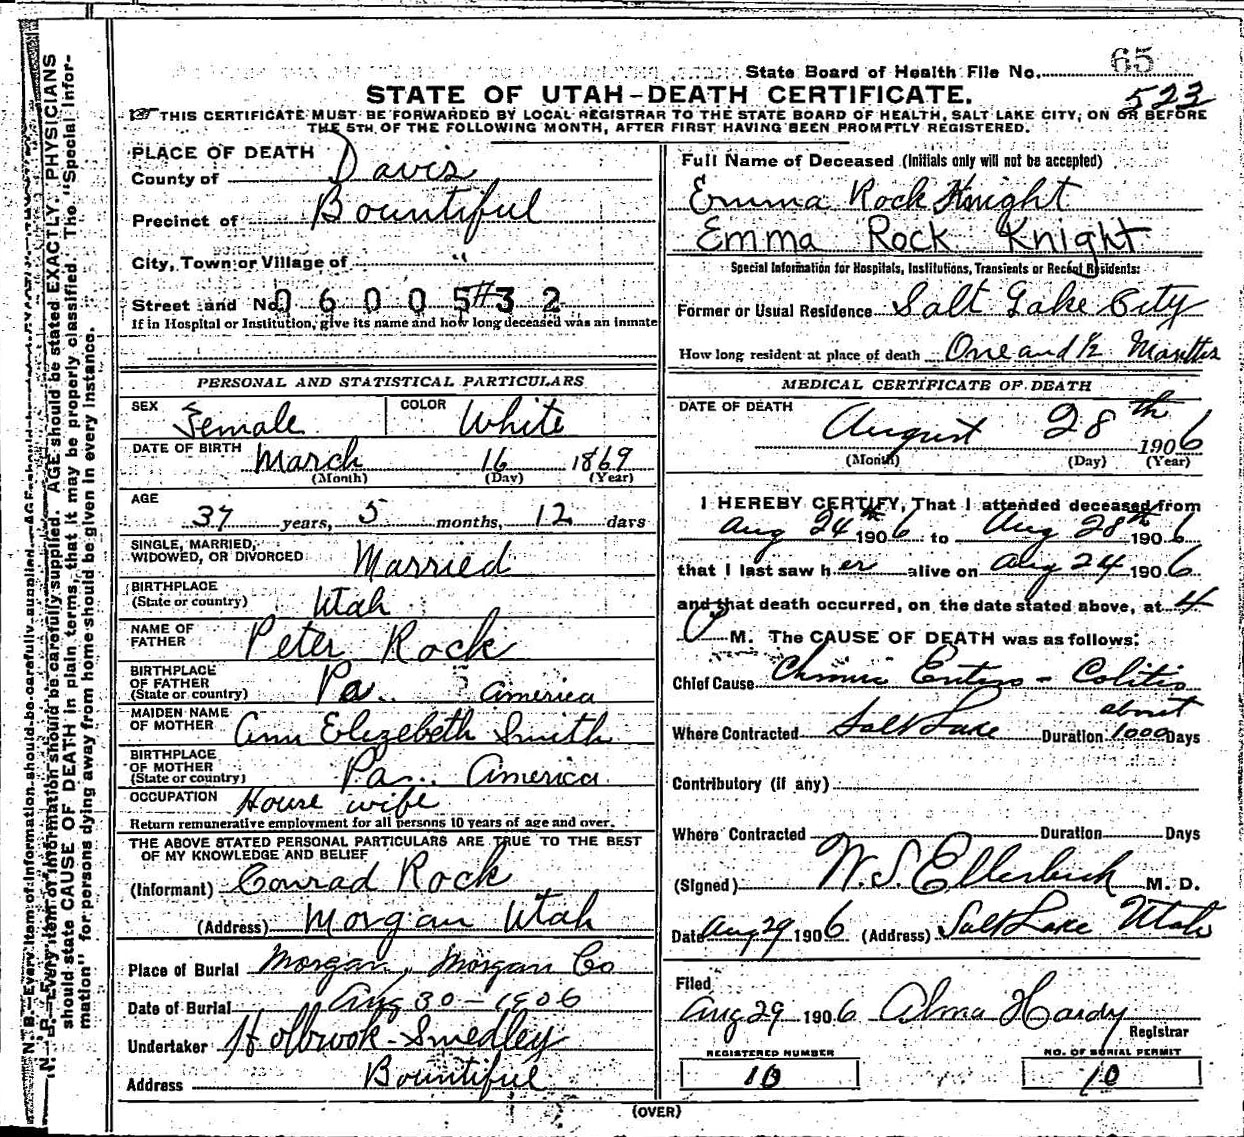 State Board of Health File No. 65
523
STATE OF UTAH–DEATH CERTIFICATE.
THIS CERTIFICATE MUST BE FORWARDED BY LOCAL REGISTRAR TO THE STATE BOARD OF HEALTH, SALT LAKE CITY, ON OR BEFORE
THE 5TH OF THE FOLLOWING MONTH, AFTER FIRST HAVING BEEN PROMPTLY REGISTERED.
PLACE OF DEATH
County of Davis
Precinct of Bountiful
City, Town or Village of "
Street and No. 0600532
If in Hospital or Institution, give its name and how long deceased was an inmate
PERSONAL AND STATISTICAL PARTICULARS
SEX Female COLOR White
DATE OF BIRTH March 16 1869
(Month) (Day) (Year)
AGE
37 years, 5 months, 12 days
SINGLE, MARRIED,
WIDOWED, OR DIVORCED Married
BIRTHPLACE
(State or country) Utah
NAME OF
FATHER Peter Rock
BIRTHPLACE
OF FATHER
(State or country) Pa. America
MAIDEN NAME
OF MOTHER Ann Elizebeth Smith
BIRTHPLACE
OF MOTHER
(State or country) Pa. America
OCCUPATION House wife
Return remunerative employment for all persons 10 years of age and over.
THE ABOVE STATED PERSONAL PARTICULARS ARE TRUE TO THE BEST
OF MY KNOWLEDGE AND BELIEF
(Informant) Conrad Rock
(Address) Morgan Utah
Place of Burial Morgan, Morgan Co
Date of Burial Aug 30–1906
Undertaker Holbrook-Smedley
Address Bountiful
Full Name of Deceased (Initials only will not be accepted)
Emma Rock Knight
Emma Rock Knight
Special Information for Hospitals, Institutions, Transients or Recent Residents:
Former or Usual Residence Salt Lake City
How long resident at place of death One and 1/2 Months
MEDICAL CERTIFICATE OF DEATH
DATE OF DEATH
August 28th 1906
(Month) (Day) (Year)
I HEREBY CERTIFY, That I attended deceased from
Aug 24th 1906 to Aug 28th 1906
that I last saw her alive on Aug 24 1906
and that death occurred, on the date stated above, at 4
P M. The CAUSE OF DEATH was as follows:
Chief Cause Chronic Entero-Colitis
about
Where Contracted Salt Lake Duration 1000 Days
Contributory (if any)
Where Contracted Duration Days
(Signed) W. S. Ellerbeck M. D.
Date Aug 29 1906 (Address) Salt Lake Utah
Filed
Aug 29 1906 Alma Hardy
Registrar
REGISTERED NUMBER
10
NO. OF BURIAL PERMIT
10
(OVER)
N. B.—Every item of information should be carefully supplied. AGE should be stated EXACTLY. PHYSICIANS
should state CAUSE OF DEATH in plain terms, that it may be properly classified. The "Special Infor-
mation" for persons dying away from home should be given in every instance.